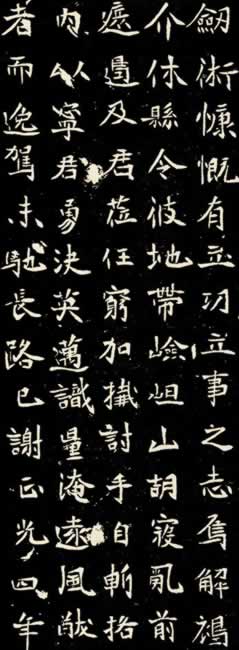 劒術慷慨有立功立事之志焉解褐
介休縣令彼地帶嶮岨山胡寇亂前
及君莅任窮加擒討手自斬挌
内以寧君勇決英邁識量淹遠風猷
者而逸駕未馳長路已謝正光四年